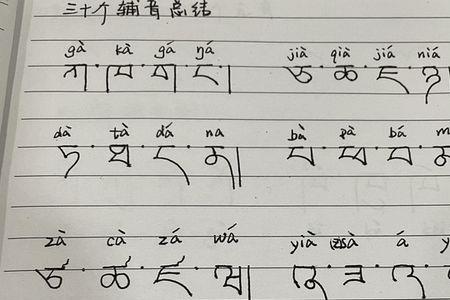 三十个辅音总结
gà kà gá ŋá jià qià jiá niá
ཀ་ཁ་ག་ང། ཅ་ཆ་ཇ་ཉ
dà tà dá na bà pà bá m
ཏ་ཐ་ད་ན། པ་ཕ་བ་མ
zà cà zá wá yià á y
ཙ་ཚ་ཛ་ཝ། ཞ་ཟ་འ་